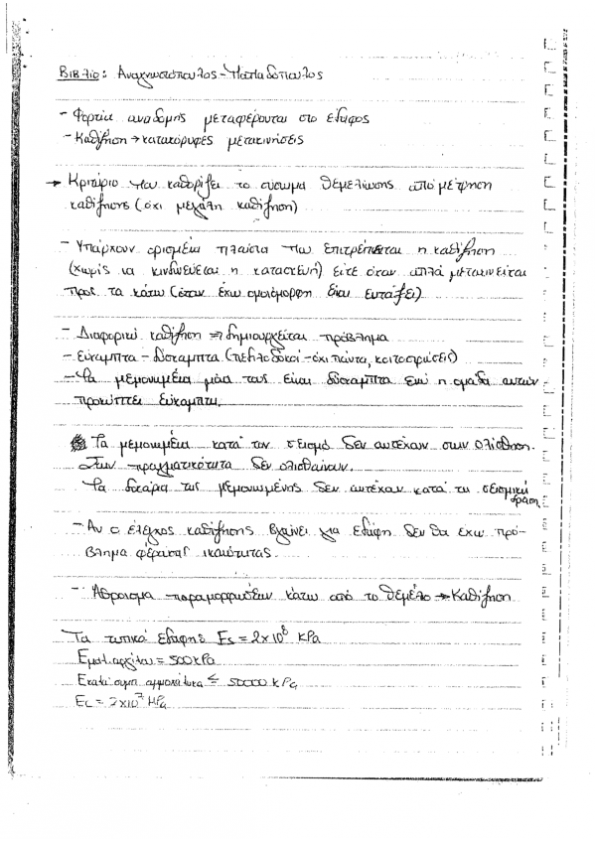 Βιβλίο: Αναγνωστόπουλος - Παπαδόπουλος
- Φορτία ανωδομής μεταφέρονται στο έδαφος
- Καθίζηση → κατακόρυφες μετακινήσεις
→ Κριτήριο που καθορίζει το σύστημα θεμελίωσης από μέτρηση
καθίζησης (όχι μεγάλη καθίζηση)
- Υπάρχουν ορισμένα πλαίσια που επιτρέπεται η καθίζηση
(χωρίς να κινδυνεύεται η κατασκευή) είτε όταν απλά μετακινείται
προς τα κάτω (όταν έχω ομοιόμορφη είναι εντάξει)
- Διαφορική καθίζηση → δημιουργείται πρόβλημα
- Εύκαμπτα - Δύσκαμπτα (πεδιλοδοκοί - όχι πάντα, κοιτοστρώσεις)
- Τα μεμονωμένα μόνα τους είναι δύσκαμπτα ενώ η ομάδα αυτών
προκύπτει εύκαμπτη.
Τα μεμονωμένα κατά τον σεισμό δεν αντέχουν στην ολίσθηση.
Στην πραγματικότητα δεν ολισθαίνουν.
Τα δοκάρια της μεμονωμένης δεν αντέχουν κατά τη σεισμική
δράση
- Αν ο έλεγχος καθίζησης βγαίνει για εδάφη δεν θα έχω πρό-
βλημα φέρουσας ικανότητας.
- Άθροισμα παραμορφώσεων κάτω από το θεμέλιο → Καθίζηση
Τα τυπικά εδάφη: Es = 2×10⁸ kPa
Εμαλ.αργίλου = 500 kPa
≤ 50000 kPa
Ec = 2×10⁷ kPa